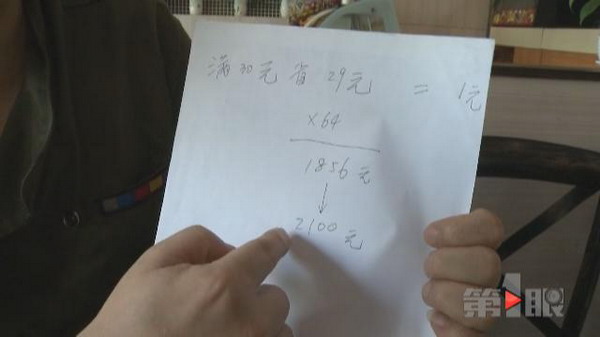 满30元省29元 = 1元
×64
1856元
↓
2100元
第1眼